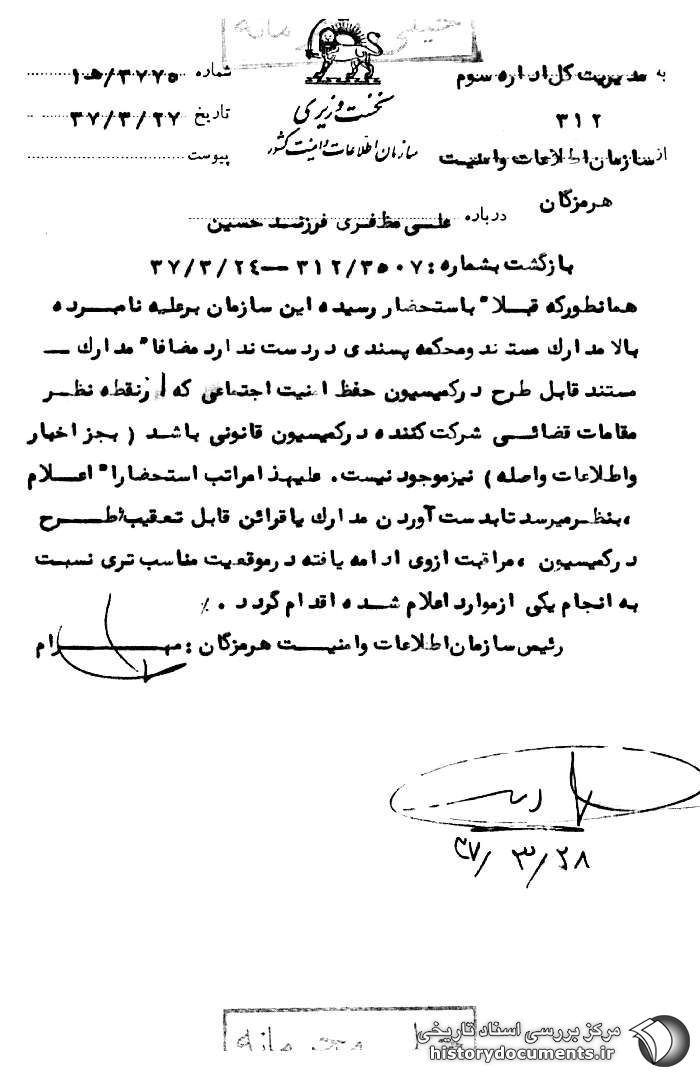 خیلی محرمانه
نخست وزیری
سازمان اطلاعات و امنیت کشور
به مدیریت کل اداره سوم
۳۱۲
از سازمان اطلاعات وامنیت
هرمزگان
شماره ۳۷۷۵/هـ۱
تاریخ ۳۷/۳/۲۷
پیوست
درباره علی مظفری فرزند حسین
بازگشت بشماره: ۳۱۲/۳۵۰۷ — ۳۷/۳/۲۴
همانطورکه قبلا" باستحضار رسیده این سازمان برعلیه نامبرده
بالا مدارک مستند ومحکمه پسندی دردست ندارد مضافا" مدارک —
مستند قابل طرح درکمیسیون حفظ امنیت اجتماعی که ازنقطه نظر
مقامات قضائی شرکت کننده درکمیسیون قانونی باشد (بجز اخبار
واطلاعات واصله) نیزموجود نیست. علیهذا مراتب استحضارا" اعلام
،بنظرمیرسد تابدست آوردن مدارک یاقرائن قابل تعقیب/طرح
درکمیسیون ،مراقبت ازوی ادامه یافته درموقعیت مناسب تری نسبت
به انجام یکی ازموارد اعلام شده اقدام گردد ٪.
رئیس سازمان اطلاعات وامنیت هرمزگان: مهرام
۳۷/۳/۲۸
خیلی محرمانه
مرکز بررسی اسناد تاریخی
historydocuments.ir